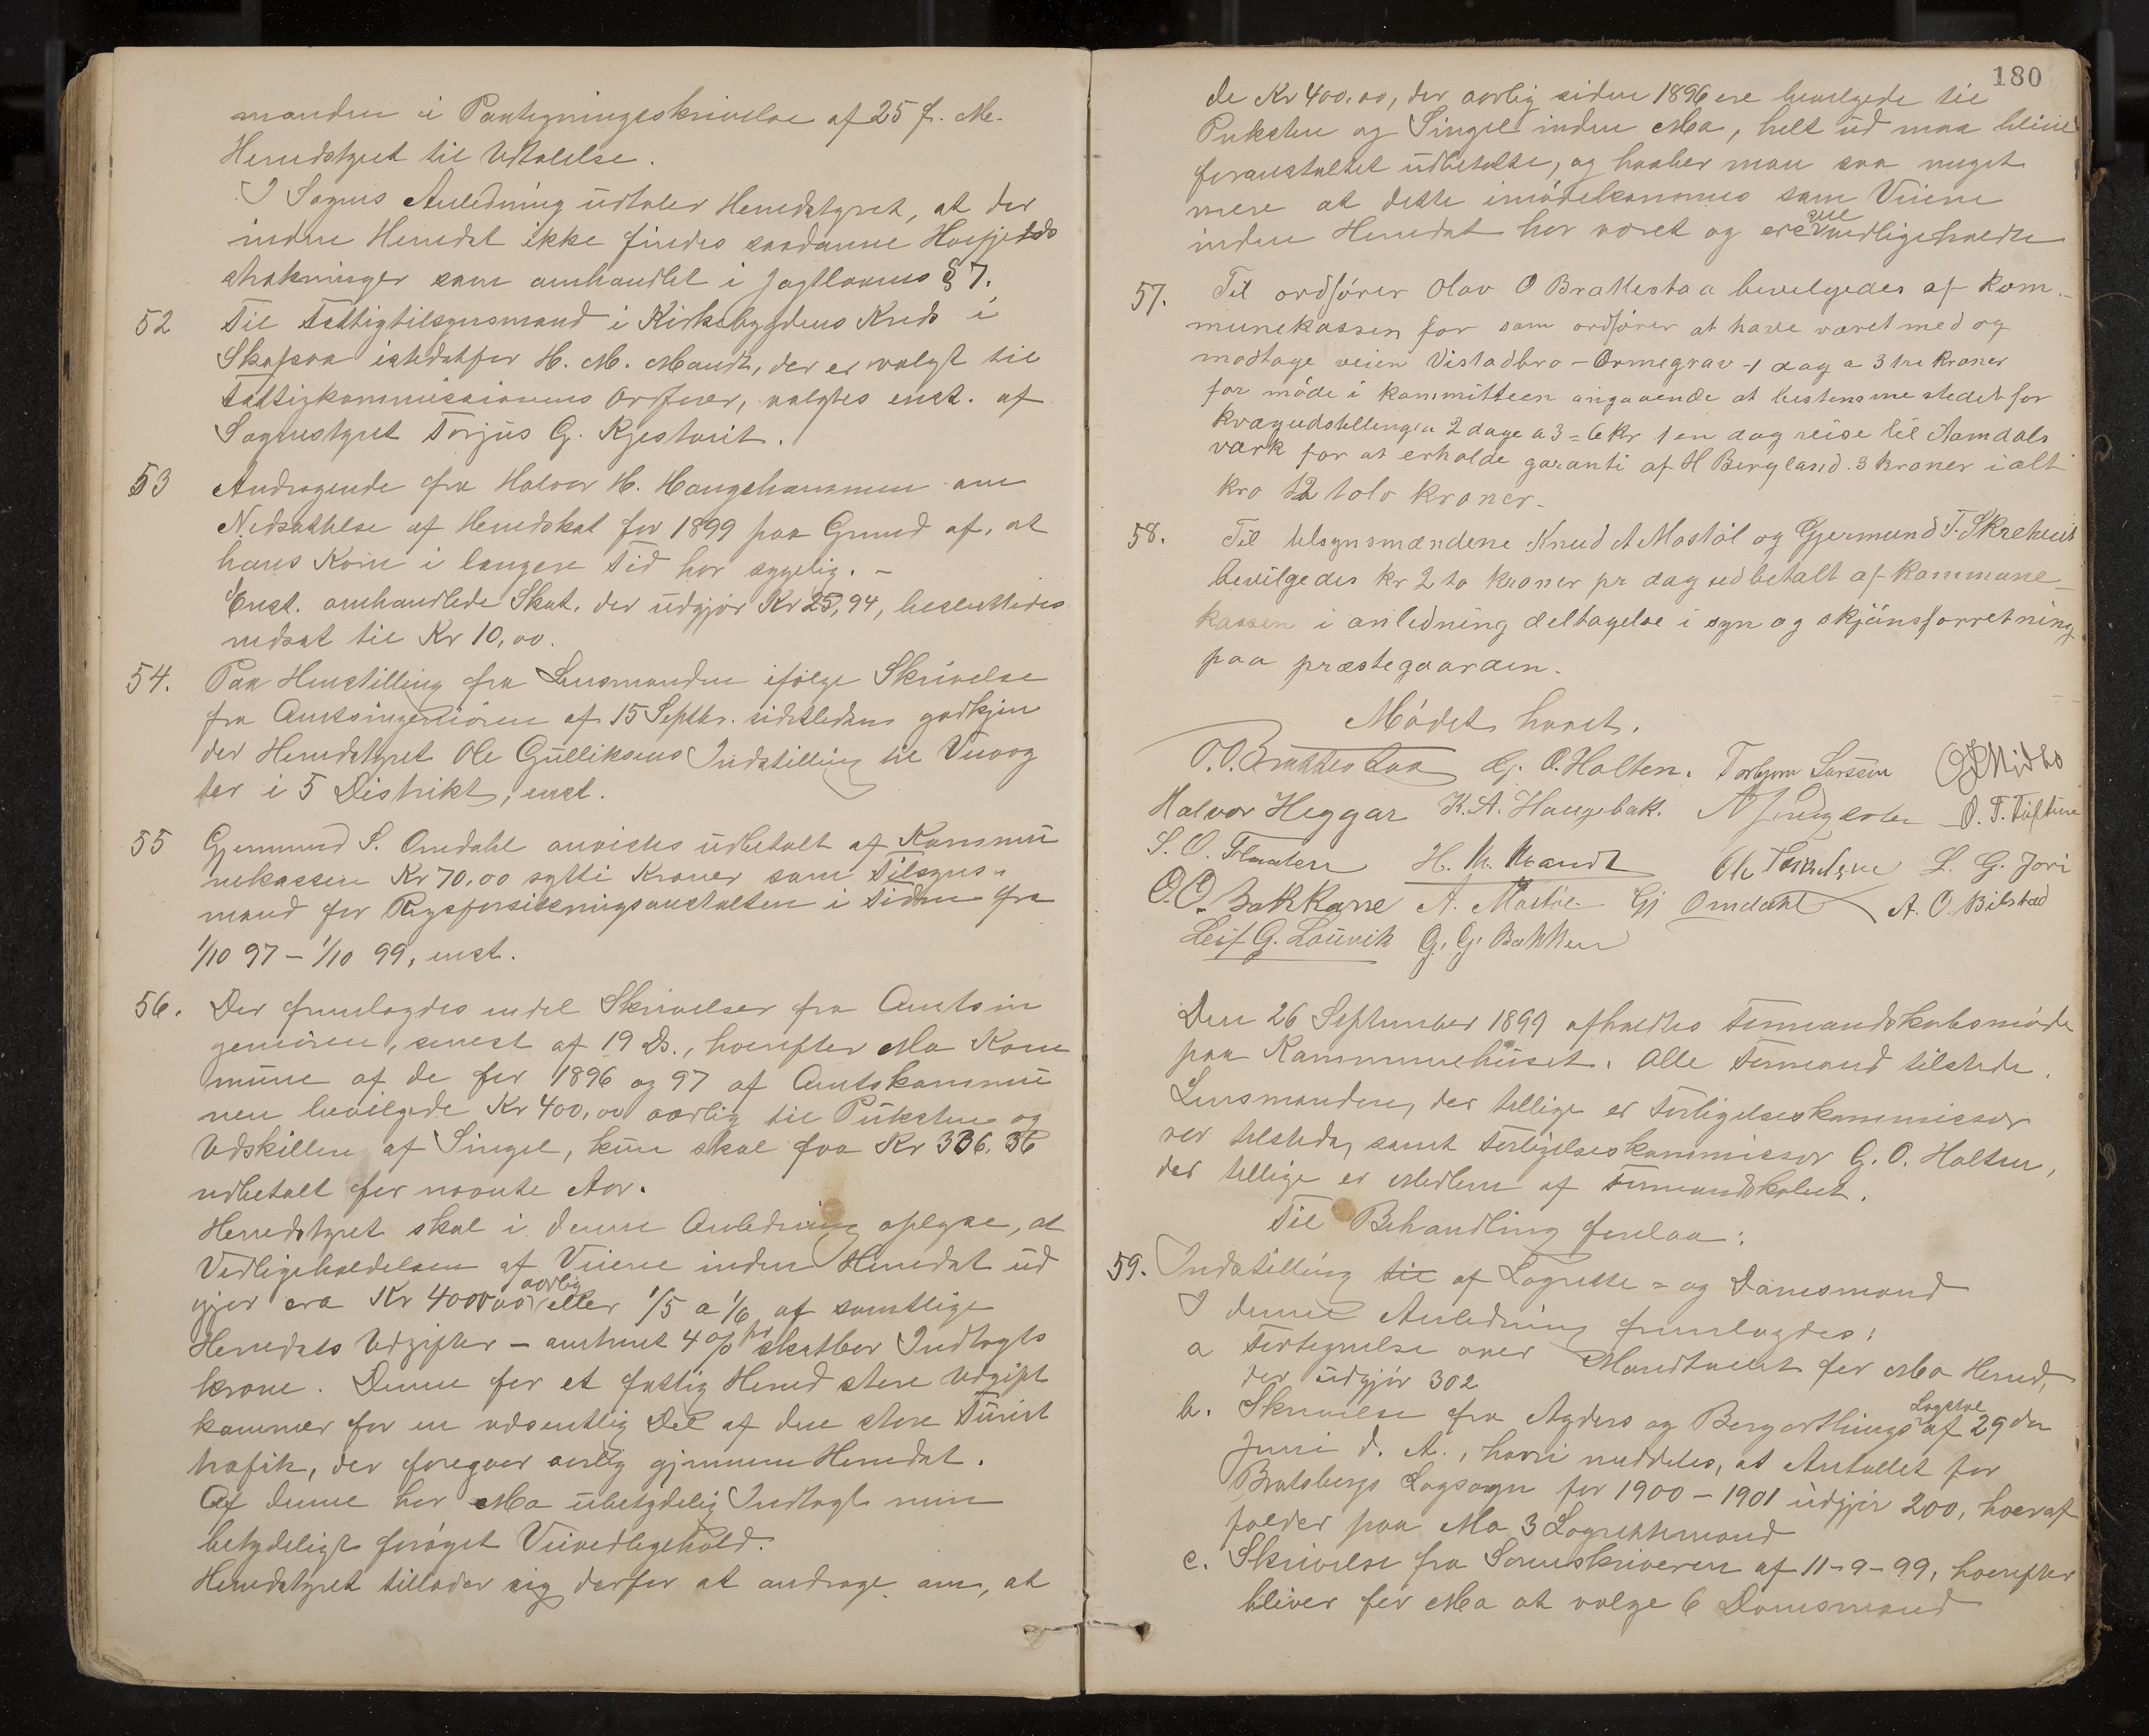 manden i Paategningsskrivelse af 25 f. M.
Herredstyret til Udtalelse.
I Sagens Anledning udtaler Herredstyret, at der
inden Herredet ikke findes saadanne Høifjelds
strækninger som omhandlet i Jagtlovens § 7.
52 Til Fattigtilsynsmand i Kirkebygdens Kreds i
Skafsaa istedetfor H. M. Mandt, der er valgt til
Fattigkommissionens Ordfører, valgtes enst. af
Sognestyret Torjus G. Kjestveit.
53 Andragende fra Halvor H. Haugehammen om
Nedsættelse af Herredskat for 1899 paa Grund af, at
hans Kone i længere Tid har sygelig. -
Enst. omhandlede Skat, der udgjør Kr 25,94, besluttedes
nedsat til Kr 10,00.
54. Paa Henstilling fra Lensmanden ifølge Skrivelse
fra Amtsingeniøren af 15 Septbr. sidstleden godkjen
der Herredstyret Ole Gulliksens Indstilling til Veivog
ter i 5 Distrikt, enst.
55 Gjermund S. Omdahl anvistes udbetalt af Kommu
nekassen Kr 70,00 sytti Kroner som Tilsyns-
mand for Rigsforsikringsanstalten i Tiden fra
1/10 97 - 1/10 99, enst.
56. Der fremlagdes endel Skrivelser fra Amtsin
geniøren, senest af 19 Ds., hvorefter Mo Kom
mune af de for 1896 og 97 af Amtskommu
nen bevilgede Kr 400,00 aarlig til Puksten og
Udskillen af Singel, kun skal faa Kr 336,36
udbetalt for nævnte Aar.
Herredstyret skal i denne Anledning oplyse, at
Vedligeholdelsen af Veiene inden Herredet ud
gjør cra Kr 4000,00 aarlig eller 1/5 a 1/6 af samtlige
Herredets Udgifter - omtrent 4 % pr skatbar Indtægts
krone. Denne for et fattig Herred store Udgift
kommer for en væsentlig Del af den store Turist
trafik, der foregaar aarlig gjennem Herredet.
Af denne har Mo ubetydelig Indtægt men
betydeligt forøget Veivedligehold.
Herredstyret tillader sig derfor at andrage om, at
180
de Kr 400,00, der aarlig siden 1896 ere bevilgede til
Puksten og Singel inden Mo, helt ud maa blive
foranstaltet udbetalte, og haaber man saa meget
mere at dette imødekommes som Veiene
inden Herredet har været og ere vedligeholdte
57. Til ordfører Olav O Brattestaa bevilgedes af kom-
munekassen for som ordfører at have været med og
modtage veien Vistadbro - Ormegrav - 1 dag a 3 tre kroner
for møde i kommitteen angaaende at bestemme stedet for
kvægudstillingen 2 dage a 3 = 6 kr 1 en dag reise til Aamdals
værk for at erholde garanti af H Bergland. 3 kroner i alt
kro 12 tolv kroner.
58. Til tilsynsmændene Knud A Mostøl og Gjermund T. Skreheit
bevilgedes kr 2 to kroner pr dag udbetalt af kommune-
kassen i anledning deltagelse i syn og skjønsforretning
paa præstegaarden.
Mødet hævet.
O. O. Brattestaa G. O. Holten. Torbjørn Larssen O J Midtbø
Halvor Heggar K. A. Haugebak. O. T. Tuftene
S. O. Flaaten H. M. Mandt L. G. Jori
O. O. Bakkane A. Mostøl Gj Omdahl A. O. Bilstad
Leif G. Lauvik G. G. Bakken
Den 26 September 1899 afholdtes Formandskabsmøde
paa Kommunehuset. Alle Formænd tilstede.
Lensmanden, der tillige er Forligelseskommissær
var tilstede, samt Forligelseskommissær G. O. Holten,
der tillige er Medlem af Formandskabet.
Til Behandling forelaa:
59. Indstilling til af Lagrette = og Domsmænd
I denne Anledning fremlagdes:
a Fortegnelse over Mandtallet for Mo Herred,
der udgjør 302
b. Skrivelse fra Agders og Bergarthings Lagstol af 29 de
Juni d. A., hvori meddeles, at Antallet for
Bratsbergs Lagsogn for 1900 - 1901 udgjør 200, hvoraf
falder paa Mo 3 Lagrettemænd
c. Skrivelse fra Sorenskriveren af 11-9-99, hvorefter
bliver for Mo at vælge 6 Domsmænd